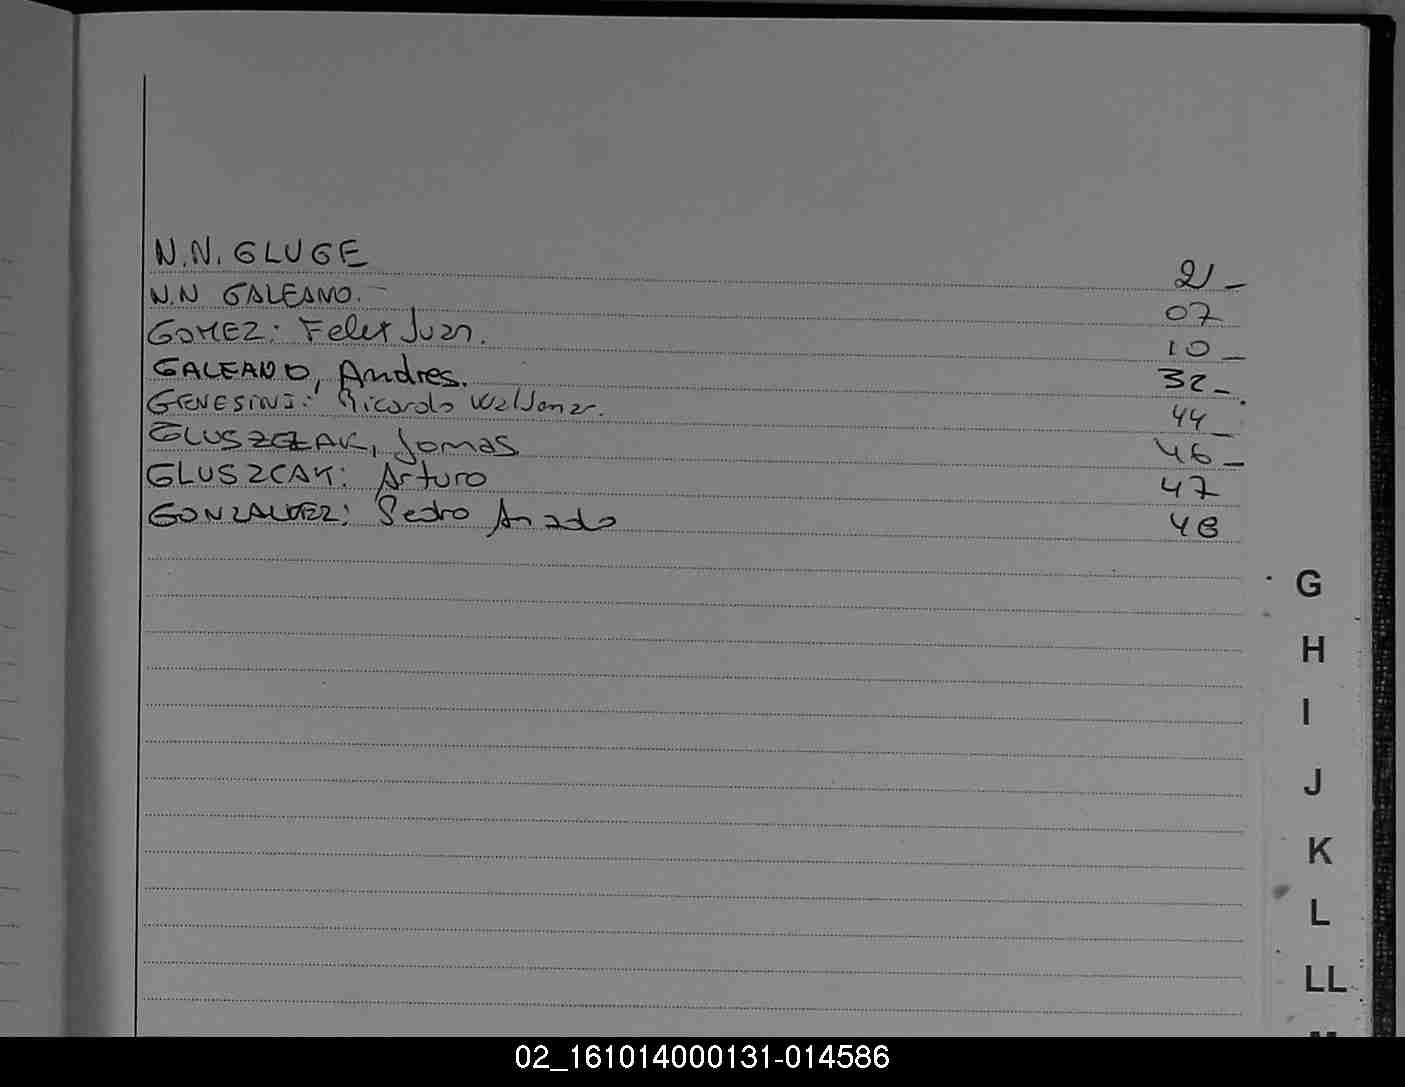 N.N. GLUGE 21_
N.N GALEANO. 07
GOMEZ: Felix Juan. 10_
GALEANO, Andres. 32_
GENESINI: Ricardo Waldemar. 44_
GLUSZCZAK, Tomas 46_
GLUSZCAK: Arturo 47
GONZALVEZ: Pedro Amado 48
G
H
I
J
K
L
LL
02_161014000131-014586